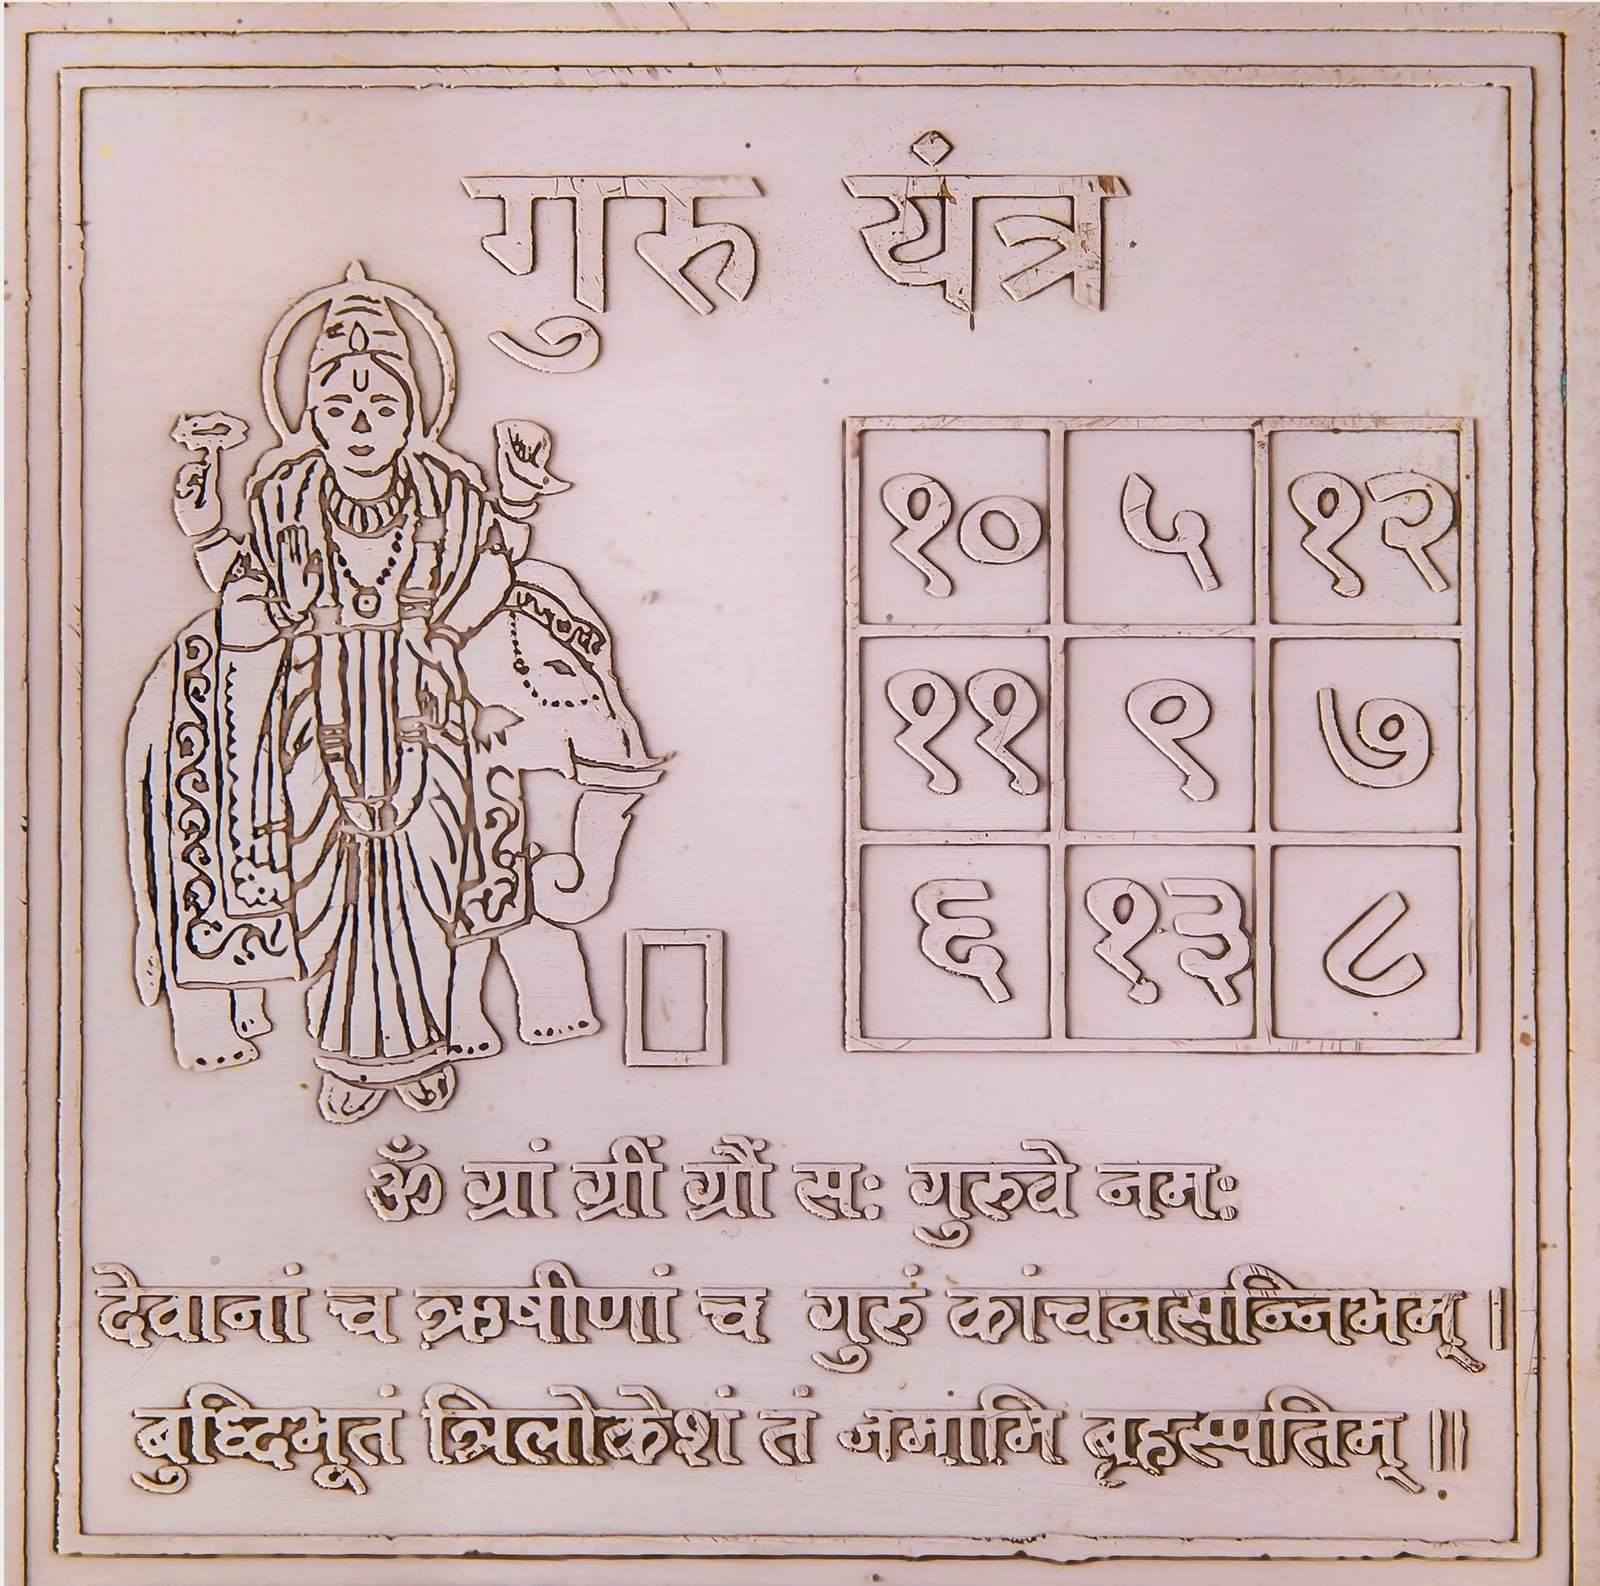 गुरु यंत्र
१० ५ १२
११ ९ ७
६ १३ ८
ॐ ग्रां ग्रीं ग्रौं सः गुरुवे नमः
देवानां च ऋषीणां च गुरुं कांचनसन्निभम् ।
बुध्दिभूतं त्रिलोकेशं तं नमामि बृहस्पतिम् ॥